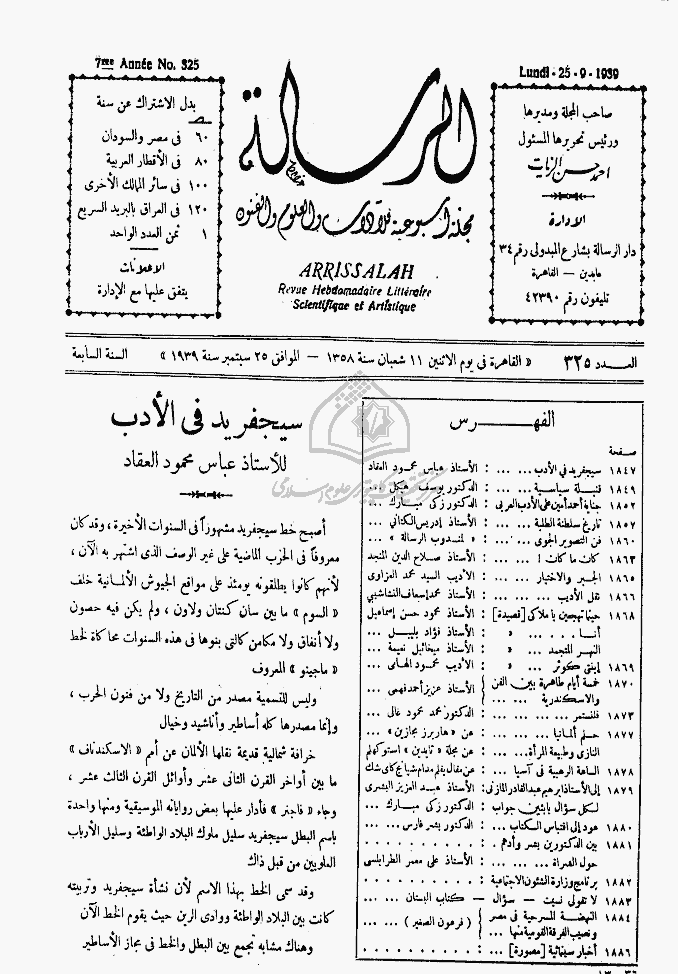 7me Année No. 325
Lundi - 25 - 9 - 1939
بدل الاشتراك عن سنة
٦٠ فى مصر والسودان
٨٠ فى الأقطار العربية
١٠٠ فى سائر الممالك الأخرى
١٢٠ فى العراق بالبريد السريع
١ ثمن العدد الواحد
الاعلانات
يتفق عليها مع الإدارة
الرسالة
مجلة أسبوعية للآداب والعلوم والفنون
ARRISSALAH
Revue Hebdomadaire Littéraire
Scientifique et Artistique
صاحب المجلة ومديرها
ورئيس تحريرها المسئول
احمد حسن الزيات
الادارة
دار الرسالة بشارع المبدولى رقم ٣٤
عابدين — القاهرة
تليفون رقم ٤٢٣٩٠
العدد ٣٢٥
« القاهرة فى يوم الاثنين ١١ شعبان سنة ١٣٥٨ — الموافق ٢٥ سبتمبر سنة ١٩٣٩ »
السنة السابعة
الفهرس
صفحة
١٨٤٧ سيجفريد في الأدب ... ... : الأستاذ عباس محمود العقاد
١٨٤٩ قنبلة سياسية ... ... : الدكتور يوسف هيكل ...
١٨٥٢ جناية أحمد أمين على الأدب العربى : الدكتور زكى مبارك ...
١٨٥٧ تاريخ سلطنة الطلبة ... ... : الأستاذ إدريس الكتانى ...
١٨٦٠ فن التصوير الجوى ... ... : « لمندوب الرسالة » ...
١٨٦٣ كات ما كات ! ... ... : الأستاذ صلاح الدين المنجد
١٨٦٥ الجبر والاختيار ... ... : الأديب السيد محمد العزاوى
١٨٦٦ نقل الأديب ... ... : الأستاذ محمد إسعاف النشاشيبى
١٨٦٨ حينما تهجين يا ملاكى [قصيدة] : الأستاذ محمود حسن إسماعيل
أنا ... ... « : الأستاذ فؤاد بليبل ...
النهر المتجمد ... « : الأستاذ ميخائيل نعيمة ...
١٨٦٩ إبنتى كوثر ... « : الأديب محمود
١٨٧٠ خمسة أيام طاهرة بين الفن والاسكندرية ... ... : الأستاذ عزيز أحمد فهمى ...
١٨٧٣ ... ... : الدكتور محمد محمود غالى ...
١٨٧٧ حلم ألمانيا ... ... : عن « هاربرز مجازين » ...
النازى وطبيعة المرأة ... : عن مجلة « تايدين » استوكهلم
١٨٧٨ الساعة الرهيبة فى آسيا ... : عن مقال بقلم مدام شيانج كاى شك
١٨٧٩ إلى الأستاذ إبراهيم عبد القادر المازنى : الأستاذ عبد العزيز البشرى
لكل سؤال يا بثين جواب : الدكتور زكى مبارك ...
١٨٨٠ عود إلى اقتباس الكتاب ... : الدكتور بشر فارس ...
١٨٨١ بين الدكتورين بشر وأدهم . : . . . . . . . .
حول الصراة ... ... : الأستاذ على معمر الطرابلسى
١٨٨٢ برنامج وزارة الشئون الاجتماعية : . . . . . . . .
١٨٨٣ لا تقولى نسيت — سؤال — كتاب البستان ...
١٨٨٤ النهضة المسرحية فى مصر ونصيب الفرقة القومية منها ... : ( فرعون الصغير ) ...
١٨٨٦ أخبار سينمائية [مصورة] ... : . . . . . . . .
سيجفريد فى الأدب
للأستاذ عباس محمود العقاد
أصبح خط سيجفريد مشهوراً فى السنوات الأخيرة ، وقد كان
معروفاً فى الحرب الماضية على غير الوصف الذى اشتهر به الآن ،
لأنهم كانوا يطلقونه يومئذ على مواقع الجيوش الألمانية خلف
« السوم » ما بين سان كنتان ولاون ، ولم يكن فيه حصون
ولا أنفاق ولا مكامن كالتى بنوها فى هذه السنوات محاكاة لخط
« ماجينو » المعروف
وليس للتسمية مصدر من التاريخ ولا من فنون الحرب ،
وإنما مصدرها كله أساطير وأناشيد وخيال
خرافة شمالية قديمة نقلها الألمان عن أمم « الاسكندناف »
ما بين أواخر القرن الثانى عشر وأوائل القرن الثالث عشر ،
وجاء « فاجنر » فأدار عليها بعض رواياته الموسيقية ومنها واحدة
باسم البطل سيجفريد سليل ملوك البلاد الواطئة وسليل الأرباب
العلويين من قبل ذاك
وقد سمى الخط بهذا الاسم لأن نشأة سيجفريد وتربيته
كانت بين البلاد الواطئة ووادى الرين حيث يقوم الخط الآن
وهناك مشابه تجمع بين البطل والخط فى مجاز الأساطير